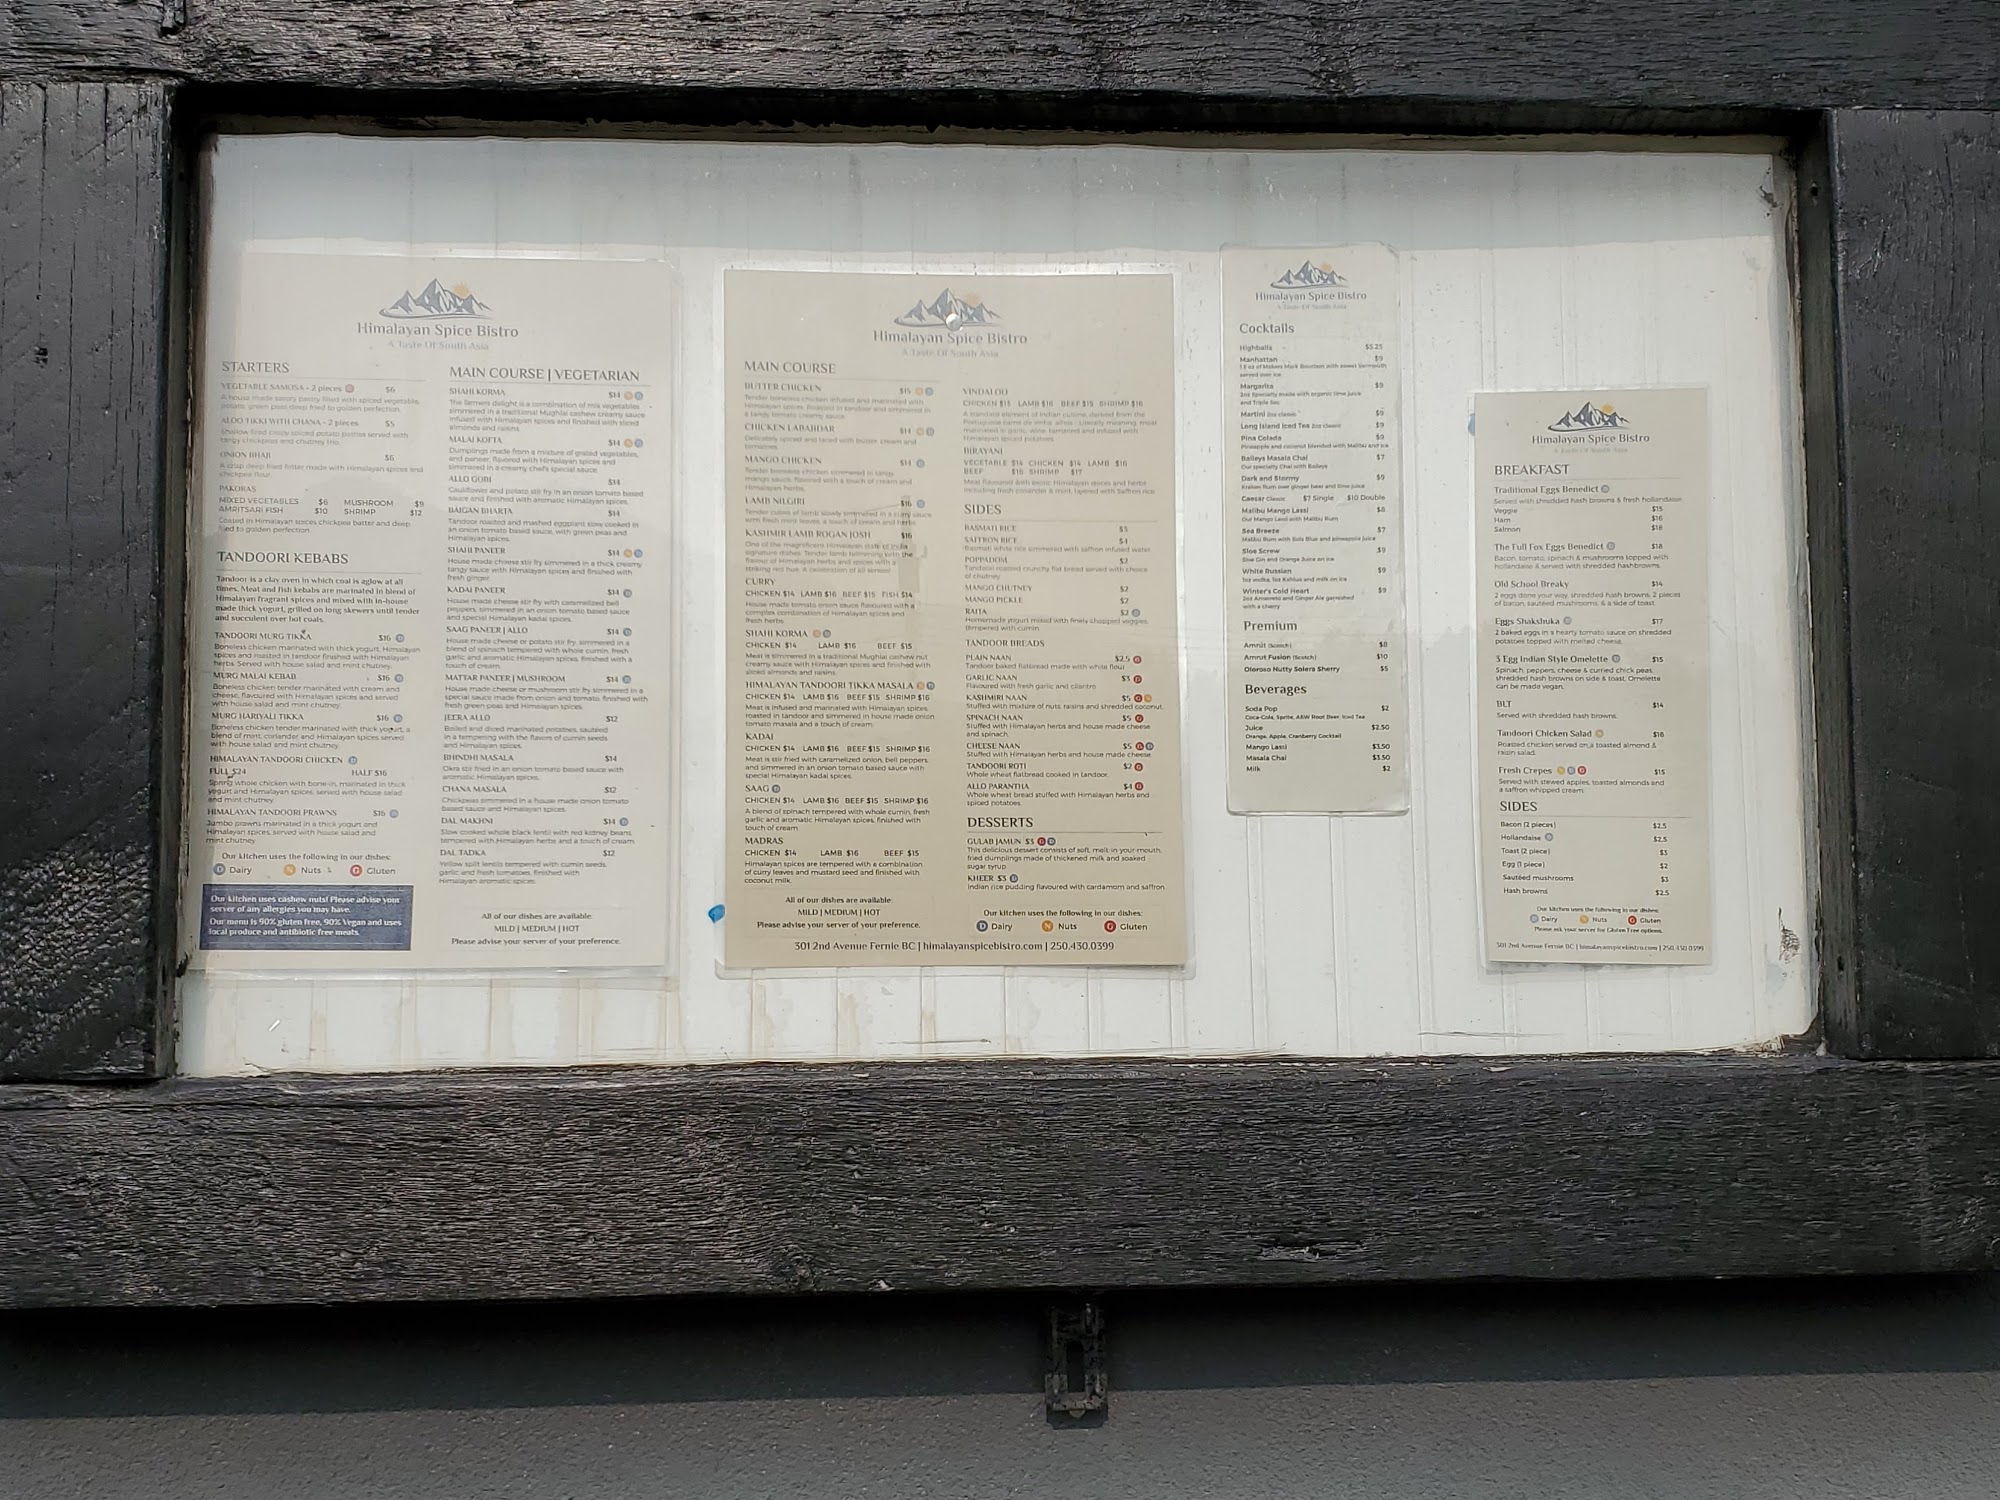 Himalayan Spice Bistro
A Taste Of South Asia
STARTERS
VEGETABLE SAMOSA - 2 pieces G $6
A house made savory pastry filled with spiced vegetable,
potato, green peas deep fried to golden perfection.
ALOO TIKKI WITH CHANA - 2 pieces $5
Shallow fried crispy spiced potato patties served with
tangy chickpeas and chutney trio.
ONION BHAJI $6
A crisp deep fried fritter made with Himalayan spices and
chickpea flour.
PAKORAS
MIXED VEGETABLES $6 MUSHROOM $9
AMRITSARI FISH $10 SHRIMP $12
Coated in Himalayan spices chickpea batter and deep
fried to golden perfection.
TANDOORI KEBABS
Tandoor is a clay oven in which coal is aglow at all
times. Meat and fish kebabs are marinated in blend of
Himalayan fragrant spices and mixed with in-house
made thick yogurt, grilled on long skewers until tender
and succulent over hot coals.
TANDOORI MURG TIKKA $16 D
Boneless chicken marinated with thick yogurt, Himalayan
spices and roasted in tandoor finished with Himalayan
herbs. Served with house salad and mint chutney.
MURG MALAI KEBAB $16 D
Boneless chicken tender marinated with cream and
cheese, flavoured with Himalayan spices and served
with house salad and mint chutney.
MURG HARIYALI TIKKA $16 D
Boneless chicken tender marinated with thick yogurt, a
blend of mint, coriander and Himalayan spices served
with house salad and mint chutney.
HIMALAYAN TANDOORI CHICKEN D
FULL $24 HALF $16
Spring whole chicken with bone-in, marinated in thick
yogurt and Himalayan spices, served with house salad
and mint chutney.
HIMALAYAN TANDOORI PRAWNS $16 D
Jumbo prawns marinated in a thick yogurt and
Himalayan spices, served with house salad and
mint chutney.
Our kitchen uses the following in our dishes:
D Dairy N Nuts G Gluten
Our kitchen uses cashew nuts! Please advise your
server of any allergies you may have.
Our menu is 90% gluten free, 90% Vegan and uses
local produce and antibiotic free meats.
MAIN COURSE | VEGETARIAN
SHAHI KORMA $14 N D
The Semers delight is a combination of mix vegetables
simmered in a traditional Mughlai cashew creamy sauce
infused with Himalayan spices and finished with sliced
almonds and raisins.
MALAI KOFTA $14 N D
Dumplings made from a mixture of grated vegetables,
and paneer, flavored with Himalayan spices and
simmered in a creamy chefs special sauce.
ALLO GOBI $14
Cauliflower and potato stir fry in an onion tomato based
sauce and finished with aromatic Himalayan spices.
BAIGAN BHARTA $14
Tandoor roasted and mashed eggplant slow cooked in
an onion tomato based sauce, with green peas and
Himalayan spices.
SHAHI PANEER $14 N D
House made cheese stir fry simmered in a thick creamy
tangy sauce with Himalayan spices and finished with
fresh ginger.
KADAI PANEER $14 D
House made cheese stir fry with caramelized bell
peppers, simmered in an onion tomato based sauce,
and special Himalayan kadai spices.
SAAG PANEER | ALLO $14 D
House made cheese or potato stir fry, simmered in a
blend of spinach tempered with whole cumin, fresh
garlic and aromatic Himalayan spices, finished with a
touch of cream.
MATTAR PANEER | MUSHROOM $14 D
House made cheese or mushroom stir fry simmered in a
special sauce made from onion and tomato, finished with
fresh green peas and Himalayan spices.
JEERA ALLO $12
Boiled and diced marinated potatoes, sautéed
in a tempering with the flavors of cumin seeds
and Himalayan spices.
BHINDHI MASALA $14
Okra stir fried in an onion tomato based sauce with
aromatic Himalayan spices.
CHANA MASALA $12
Chickpeas simmered in a house made onion tomato
based sauce and Himalayan spices.
DAL MAKHNI $14 D
Slow cooked whole black lentil with red kidney beans,
tempered with Himalayan herbs and a touch of cream.
DAL TADKA $12
Yellow split lentils tempered with cumin seeds,
garlic and fresh tomatoes, finished with
Himalayan aromatic spices.
All of our dishes are available:
MILD | MEDIUM | HOT
Please advise your server of your preference.
Himalayan Spice Bistro
A Taste Of South Asia
MAIN COURSE
BUTTER CHICKEN $15 N D
Tender boneless chicken infused and marinated with
Himalayan spices. Roasted in tandoor and simmered in
a tangy tomato creamy sauce.
CHICKEN LABABDAR $14 N D
Delicately spiced and laced with butter cream and
tomatoes.
MANGO CHICKEN $14 D
Tender boneless chicken simmered in tangy
mango sauce, flavored with a touch of cream and
Himalayan herbs.
LAMB NILGIRI $16 D
Tender cubes of lamb slowly simmered in a curry sauce
with fresh mint leaves, a touch of cream and herbs.
KASHMIR LAMB ROGAN JOSH $16
One of the magnificent Himalayan state of India
signature dishes. Tender lamb brimming with the
flavour of Himalayan herbs and spices with a
striking red hue. A celebration of all senses!
CURRY
CHICKEN $14 LAMB $16 BEEF $15 FISH $14
House made tomato onion sauce flavoured with a
complex combination of Himalayan spices and
fresh herbs.
SHAHI KORMA N D
CHICKEN $14 LAMB $16 BEEF $15
Meat is simmered in a traditional Mughlai cashew nut
creamy sauce with Himalayan spices and finished with
sliced almonds and raisins.
HIMALAYAN TANDOORI TIKKA MASALA N D
CHICKEN $14 LAMB $16 BEEF $15 SHRIMP $16
Meat is infused and marinated with Himalayan spices,
roasted in tandoor and simmered in house made onion
tomato masala and a touch of cream.
KADAI
CHICKEN $14 LAMB $16 BEEF $15 SHRIMP $16
Meat is stir fried with caramelized onion, bell peppers,
and simmered in an onion tomato based sauce with
special Himalayan kadai spices.
SAAG D
CHICKEN $14 LAMB $16 BEEF $15 SHRIMP $16
A blend of spinach tempered with whole cumin, fresh
garlic and aromatic Himalayan spices, finished with
touch of cream.
MADRAS
CHICKEN $14 LAMB $16 BEEF $15
Himalayan spices are tempered with a combination
of curry leaves and mustard seed and finished with
coconut milk.
All of our dishes are available:
MILD | MEDIUM | HOT
Please advise your server of your preference.
VINDALOO
CHICKEN $15 LAMB $16 BEEF $15 SHRIMP $16
A standard element of Indian cuisine, derived from the
Portuguese carne de vinha alhos - Literally meaning, meat
marinated in garlic, wine, tamarind and infused with
Himalayan spiced potatoes.
BIRAYANI
VEGETABLE $14 CHICKEN $14 LAMB $16
BEEF $16 SHRIMP $17
Meat flavoured with exotic Himalayan spices and herbs
including fresh coriander & mint, layered with Saffron rice.
SIDES
BASMATI RICE $3
SAFFRON RICE $4
Basmati white rice simmered with saffron infused water.
POPPADOM $2
Tandoori roasted crunchy flat bread served with choice
of chutney.
MANGO CHUTNEY $2
MANGO PICKLE $2
RAITA $2 D
Homemade yogurt mixed with finely chopped veggies,
tempered with cumin.
TANDOOR BREADS
PLAIN NAAN $2.5 G
Tandoor baked flatbread made with white flour
GARLIC NAAN $3 G
Flavoured with fresh garlic and cilantro.
KASHMIRI NAAN $5 G N
Stuffed with mixture of nuts, raisins and shredded coconut.
SPINACH NAAN $5 G
Stuffed with Himalayan herbs and house made cheese
and spinach.
CHEESE NAAN $5 G D
Stuffed with Himalayan herbs and house made cheese.
TANDOORI ROTI $2 G
Whole wheat flatbread cooked in tandoor.
ALLO PARANTHA $4 G
Whole wheat bread stuffed with Himalayan herbs and
spiced potatoes.
DESSERTS
GULAB JAMUN $3 G D
This delicious dessert consists of soft, melt in your-mouth,
fried dumplings made of thickened milk and soaked
sugar syrup.
KHEER $3 D
Indian rice pudding flavoured with cardamom and saffron.
Our kitchen uses the following in our dishes:
D Dairy N Nuts G Gluten
301 2nd Avenue Fernie BC | himalayanspicebistro.com | 250.430.0399
Himalayan Spice Bistro
A Taste Of South Asia
Cocktails
Highballs $5.25
Manhattan $9
1.5 oz of Makers Mark Bourbon with sweet Vermouth
served over ice
Margarita $9
2oz Specialty made with organic lime juice
and Triple Sec
Martini 2oz classic $9
Long Island Iced Tea 2oz Classic $9
Pina Colada $9
Pineapple and coconut blended with Malibu and ice
Baileys Masala Chai $7
Our specialty Chai with Baileys
Dark and Stormy $9
Kraken Rum over ginger beer and lime juice
Caesar Classic $7 Single $10 Double
Malibu Mango Lassi $8
Our Mango Lassi with Malibu Rum
Sea Breeze $7
Malibu Rum with Bols Blue and pineapple juice
Sloe Screw $9
Sloe Gin and Orange Juice on ice
White Russian $9
1oz vodka, 1oz Kahlua and milk on ice
Winter's Cold Heart $9
2oz Amaretto and Ginger Ale garnished
with a cherry
Premium
Amrut (Scotch) $8
Amrut Fusion (Scotch) $10
Oloroso Nutty Solera Sherry $5
Beverages
Soda Pop $2
Coca-Cola, Sprite, A&W Root Beer, Iced Tea
Juice $2.50
Orange, Apple, Cranberry Cocktail
Mango Lassi $3.50
Masala Chai $3.50
Milk $2
Himalayan Spice Bistro
A Taste Of South Asia
BREAKFAST
Traditional Eggs Benedict D
Served with shredded hash browns & fresh hollandaise.
Veggie $15
Ham $16
Salmon $18
The Full Fox Eggs Benedict D $18
Bacon, tomato, spinach & mushrooms topped with
hollandaise & served with shredded hashbrowns.
Old School Breaky $14
2 eggs done your way, shredded hash browns, 2 pieces
of bacon, sautéed mushrooms, & a side of toast.
Eggs Shakshuka D $17
2 baked eggs in a hearty tomato sauce on shredded
potatoes topped with melted cheese.
3 Egg Indian Style Omelette D $15
Spinach, peppers, cheese & curried chick peas,
shredded hash browns on side & toast. Omelette
can be made vegan.
BLT $14
Served with shredded hash browns.
Tandoori Chicken Salad N $16
Roasted chicken served on a toasted almond &
raisin salad.
Fresh Crepes N D G $15
Served with stewed apples, toasted almonds and
a saffron whipped cream.
SIDES
Bacon (2 pieces) $2.5
Hollandaise D $2.5
Toast (2 piece) $3
Egg (1 piece) $2
Sautéed mushrooms $3
Hash browns $2.5
Our kitchen uses the following in our dishes:
D Dairy N Nuts G Gluten
Please ask your server for Gluten Free options.
301 2nd Avenue Fernie BC | himalayanspicebistro.com | 250.430.0399